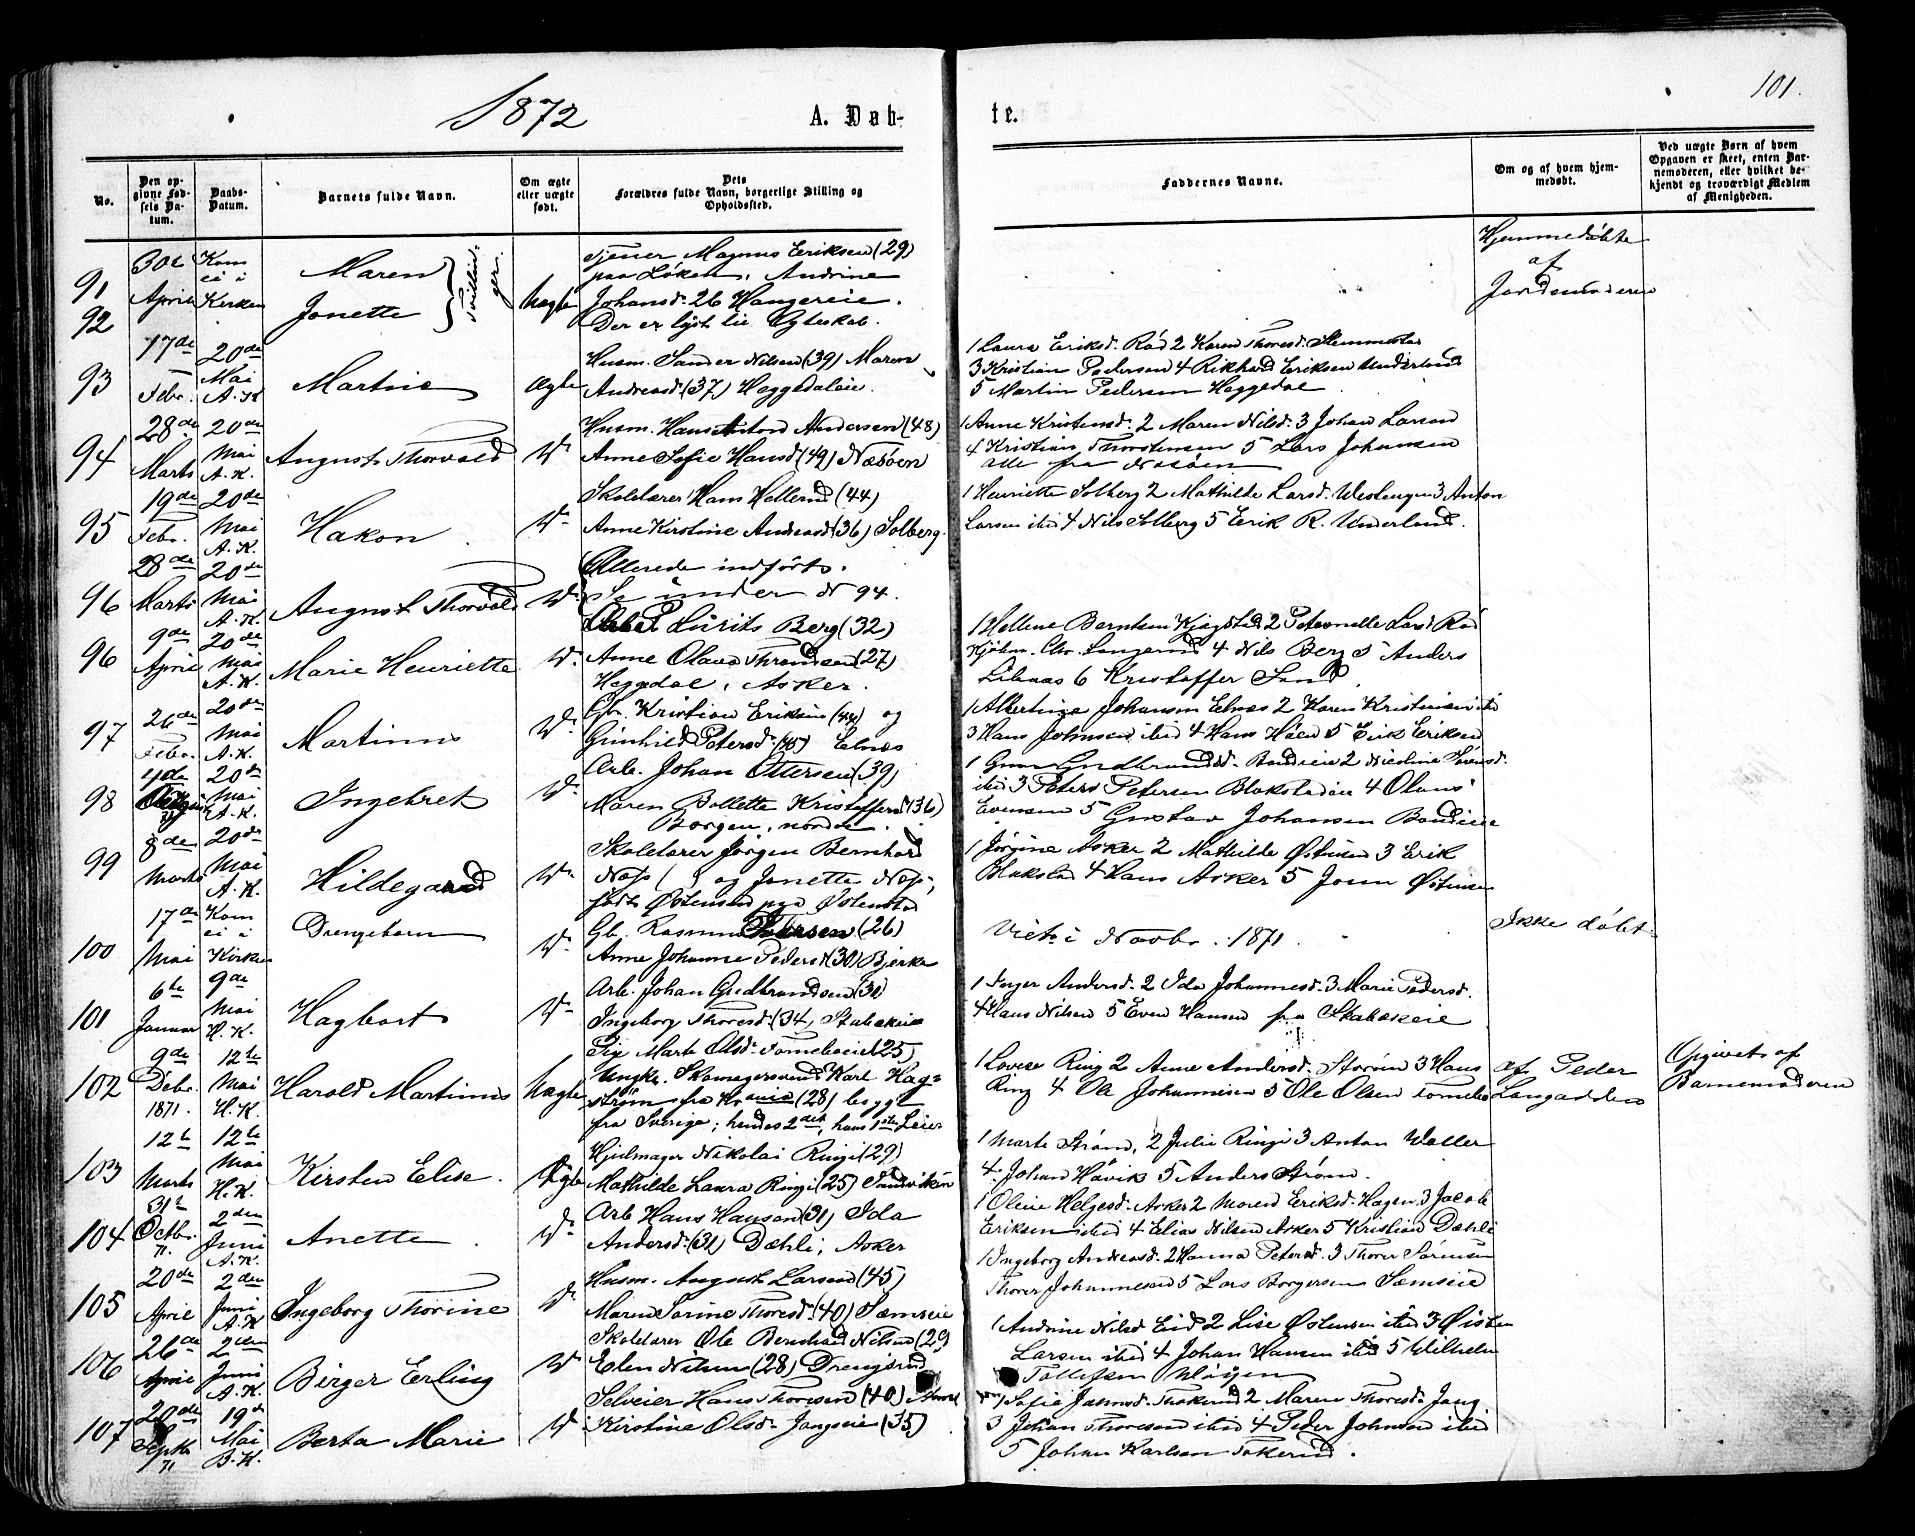 1872
A. Døb-
te.
101.
No.
Den op-
givne Fød-
sels Da-
tum.
Daabs-
Datum.
Barnets fulde Navn.
Om ægte
eller uægte
født.
Dets
Forældres fulde Navn, borgerlige Stilling og
Opholdssted.
Faddernes Navne.
Om og af hvem hjem-
medøbt.
Ved uægte Børn af hvem
Opgaven er skeet, enten Bar-
nemoderen, eller hvilket be-
kjendt og troværdigt Medlem
af Menigheden.
91
92
30te
April
Kom
ei i
Kirken
Maren
Jonette
Tvillin-
ger.
Uægte
Tjener Magnus Eriksen (29)
paa Løken, Andrine
Johansd. 26 Hangereie.
Der er lyst til Ægteskab.
Hjemmedøbte
af
Jordemoderen
93
17de
Febr.
20de
Mai
A. K.
Martine
Ægte
Husm. Sander Nilsen (39) Maren
Andreasd (37) Heggedaleie.
1 Laura Eriksd. Rød 2 Karen Thoresd. Slemmestad
3 Kristian Pedersen 4 Rikhard Eriksen Underland
5 Martin Pedersen Heggedal
94
28de
Marts
20de
Mai
A. K.
August Thorvald
Do
Husm. Hans Anton Andersen (48)
Anne Sofie Hansd (42) Næsøen
1 Anne Kristensd. 2 Maren Nilsd. 3 Johan Larsen
4 Kristian Thorstensen 5 Lars Johansen
Alle fra Næsøen
95
19de
Febr.
20de
Mai
A. K.
Hakon
Do
Skolelærer Hans Hellerud (44)
Anne Kirstine Andreasd (36) Solberg.
1 Henriette Solberg 2 Mathilde Larsd. Weslengen 3 Anton
Larsen ibid 4 Nils Solberg 5 Erik R. Underland.
96
28de
Marts
20de
Mai
A. K.
August Thorvald
Do
Allerede indført.
Se under N 94.
96
9de
April
20de
Mai
A. K.
Marie Henriette
Do
Arbd Lurits Berg (32)
Anne Olava Thrandsen (27)
Heggedal, Asker.
1 Hellene Berntsen Kjøgstad 2 Peternelle Larsd Rød
4 Nils Berg 5 Anders
6 Kristoffer Lind
97
26de
Febr.
20de
Mai
A. K.
Martinus
Do
Gbr. Kristian Eriksen (44) og
Gunhild Petersd. (45) Elnæs
1 Albertine Johansen Elnæs 2 Karen Kristiansen ibid
3 Hans Johnsen ibid 4 Hans Høen 5 Erik Eriksen
98
4de
20de
Mai
A. K.
Ingebret
Do
Arb. Johan Ottersen (39)
Maren Bollette Kristoffersd (36)
Borgen, nordre.
1 Gudbrandsd. Bondieie 2 Nicoline Sørensd.
ibid 3 Peters Petersen Blakstadeie 4 Olaus
Evensen 5 Gustav Johansen Bondieie
99
8de
Marts
20de
Mai
A. K.
Hildegard
Do
Skolelærer Jørgen Bernhard
Næss ( ) og Jonette Næss,
født Østensen paa Østenstad
1 Jørgine Asker 2 Mathilde Østensen 3 Erik
Blakstad 4 Hans Asker 5 Jonn Østensen
100
17de
Mai
Kom
ei i
Kirke
Drengebarn
Do
Gb. Rasmus Petersen (26)
Anne Johanne Pedersd (30) Bjerke
Viet i Novbr. 1871.
Ikke døbt
101
6te
Januar
9de
Mai
H. K.
Hagbart
Do
Arb. Johan Gudbrandsen (31)
Ingeborg Thoresd. (34) Stabækeie
1 Inger Andersd. 2 Ida Johannesd. 3 Marie Pedersd.
4 Hans Nilsen 5 Even Hansen fra Stabækeie
102
9de
Debr.
1871.
12te
Mai
H. K.
Harald Martinus
Uægte
Pige Marte Olsd. Tomebaeie (25)
Ungk. Skomagersvend Karl Hag-
strøm fra Krania (28) begge
fra Sverige; hendes 2det, hans 1ste Leier
1 Lovise Ring 2 Anne Andersd. Storøen 3 Hans
Ring 4 Ole Johannesen 5 Ole Olsen
af Peder
Langaadden
Opgivet af
Barnemoderen
103
12te
Marts
12te
Mai
H. K.
Kirsten Elise.
Ægte
Hjulmager Nikolai Ringi (29)
Mathilde Laura Ringi (25) Sandviken
1 Marte Strøm, 2 Julie Ringi 3 Anton Waller
4 Johan Høvik 5 Anders Strøm.
104
31te
Octbr.
71.
2den
Juni
A. K.
Anette
Do
Arb Hans Hansen (31) Ida
Andersd. (31) Dæhli, Asker
1 Oleie Helgesd. Asker 2 Maren Eriksd. Hagen. 3 Jacob
Eriksen ibid 4 Elias Nilsen Asker 5 Kristian Dæhli
105
20de
April
2den
Juni
A. K.
Ingeborg Thorine
Do
Husm. August Larsen (45)
Maren Sorine Thoresd. (40) Sæmseie
1 Ingeborg Andreasd. 2 Hanna Petersd. 3 Thorer Sørensen
Thorer Johannesen 5 Lars Borgersen Sæmseie
106
26de
April
2den
Juni
A. K.
Birger Erling
Do
Skolelærer Ole Bernhard Nilsen (29)
Elen Nilsen (28) Drengsrud
1 Andrine Nilsd Eid 2 Lise Østensen ibid 3 Øisten
Larsen ibid 4 Johan Hansen ibid 5 Wilhelm
Tollefsen
107
20de
Septbr
71
19de
Mai
B. K.
Berta Marie
Do
Selveier Hans Thoresen (40)
Kirstine Olsd. Jongseie (35)
1 Sofie 2 Maren Thoresd. Jong
3 Johan Thoresen ibid 4 Peder Johnsen ibid
5 Johan Karlsen Tokerud.